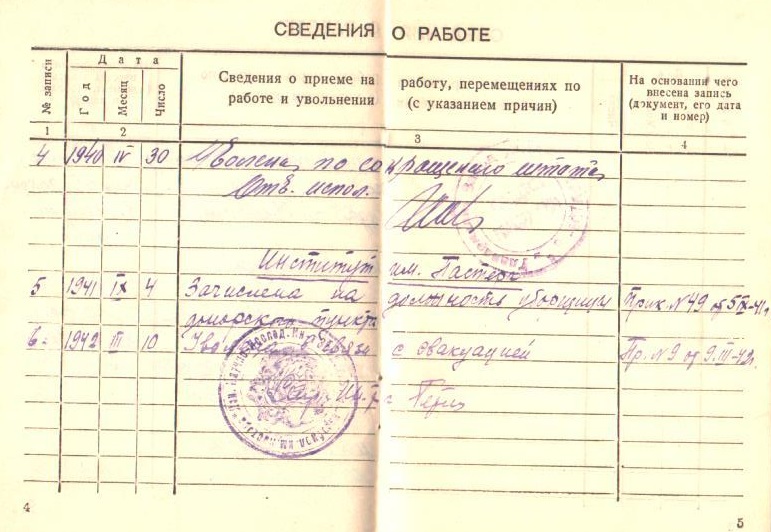 СВЕДЕНИЯ О РАБОТЕ
№ записи
Дата
Год
Месяц
Число
Сведения о приеме на работу, перемещениях по
работе и увольнении (с указанием причин)
На основании чего
внесена запись
(документ, его дата
и номер)
1 2 3 4
4 1940 IV 30 Уволена по сокращению штата
Отв. испол.
Институт им. Пастера
5 1941 IX 4 Зачислена на должность уборщицы Прик. №49 от 5/IX-41г
донорского пункта
6. 1942 III 10 в связи с эвакуацией Пр. №9 от 9.III-42г.
4
5